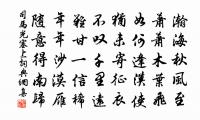 瀚海秋風至
蕭蕭木葉飛
如何逢漢使
猶未寄征衣
不嘆千里遠
難甘一信稀
年年沙漠雁
隨意得南歸
司馬光塞上詞典網集